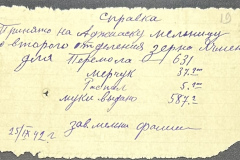 19
Справка
Принято на Аджиаску мельницу
второго отделения зерно
для Перемола 631
мерчук 37.
5.
муки выдано 587.
25/IX 42 г. зав. мельни